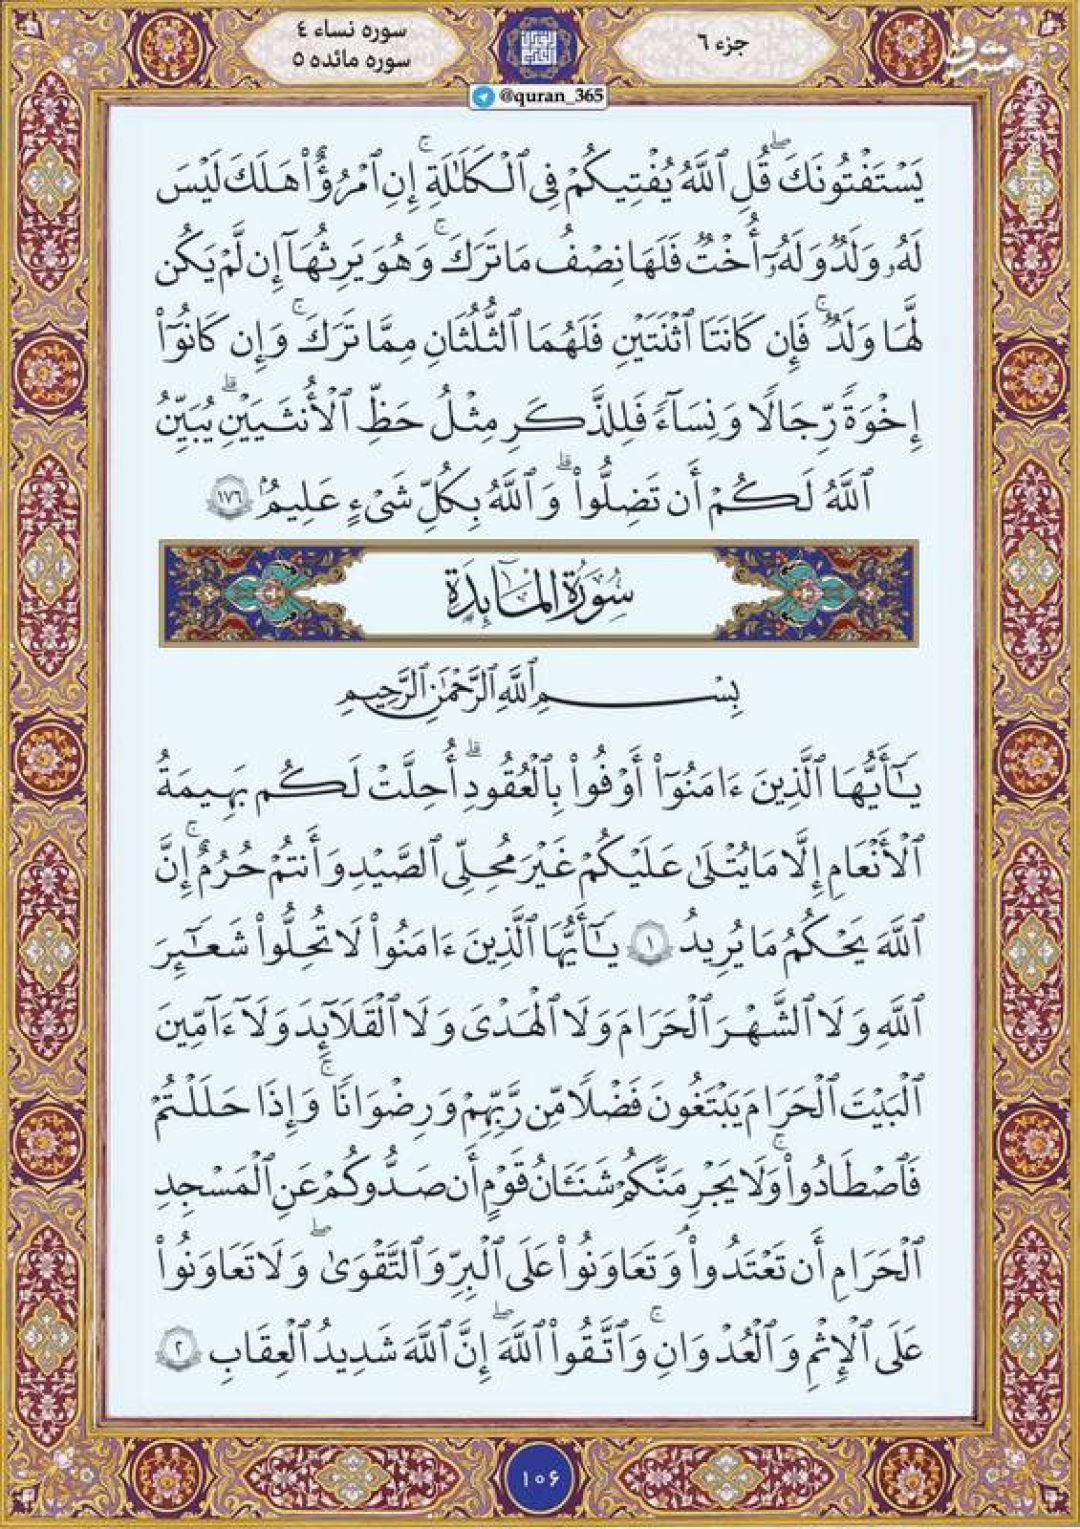 جزء ۶
سوره نساء ۴
سوره مائده ۵
مشرق
@quran_365
يَسْتَفْتُونَكَ ۖ قُلِ ٱللَّهُ يُفْتِيكُمْ فِى ٱلْكَلَٰلَةِ ۚ إِنِ ٱمْرُؤٌا۟ هَلَكَ لَيْسَ
لَهُۥ وَلَدٌ وَلَهُۥٓ أُخْتٌ فَلَهَا نِصْفُ مَا تَرَكَ ۚ وَهُوَ يَرِثُهَآ إِن لَّمْ يَكُن
لَّهَا وَلَدٌ ۚ فَإِن كَانَتَا ٱثْنَتَيْنِ فَلَهُمَا ٱلثُّلُثَانِ مِمَّا تَرَكَ ۚ وَإِن كَانُوٓا۟
إِخْوَةً رِّجَالًا وَنِسَآءً فَلِلذَّكَرِ مِثْلُ حَظِّ ٱلْأُنثَيَيْنِ ۗ يُبَيِّنُ
ٱللَّهُ لَكُمْ أَن تَضِلُّوا۟ ۗ وَٱللَّهُ بِكُلِّ شَىْءٍ عَلِيمٌۢ ١٧٦
سُورَةُ المَائِدَةِ
بِسْمِ ٱللَّهِ ٱلرَّحْمَٰنِ ٱلرَّحِيمِ
يَٰٓأَيُّهَا ٱلَّذِينَ ءَامَنُوٓا۟ أَوْفُوا۟ بِٱلْعُقُودِ ۚ أُحِلَّتْ لَكُم بَهِيمَةُ
ٱلْأَنْعَٰمِ إِلَّا مَا يُتْلَىٰ عَلَيْكُمْ غَيْرَ مُحِلِّى ٱلصَّيْدِ وَأَنتُمْ حُرُمٌ ۗ إِنَّ
ٱللَّهَ يَحْكُمُ مَا يُرِيدُ ١ يَٰٓأَيُّهَا ٱلَّذِينَ ءَامَنُوا۟ لَا تُحِلُّوا۟ شَعَٰٓئِرَ
ٱللَّهِ وَلَا ٱلشَّهْرَ ٱلْحَرَامَ وَلَا ٱلْهَدْىَ وَلَا ٱلْقَلَٰٓئِدَ وَلَآ ءَآمِّينَ
ٱلْبَيْتَ ٱلْحَرَامَ يَبْتَغُونَ فَضْلًا مِّن رَّبِّهِمْ وَرِضْوَٰنًا ۚ وَإِذَا حَلَلْتُمْ
فَٱصْطَادُوا۟ ۚ وَلَا يَجْرِمَنَّكُمْ شَنَـَٔانُ قَوْمٍ أَن صَدُّوكُمْ عَنِ ٱلْمَسْجِدِ
ٱلْحَرَامِ أَن تَعْتَدُوا۟ ۘ وَتَعَاوَنُوا۟ عَلَى ٱلْبِرِّ وَٱلتَّقْوَىٰ ۖ وَلَا تَعَاوَنُوا۟
عَلَى ٱلْإِثْمِ وَٱلْعُدْوَٰنِ ۚ وَٱتَّقُوا۟ ٱللَّهَ ۖ إِنَّ ٱللَّهَ شَدِيدُ ٱلْعِقَابِ ٢
١٠۶